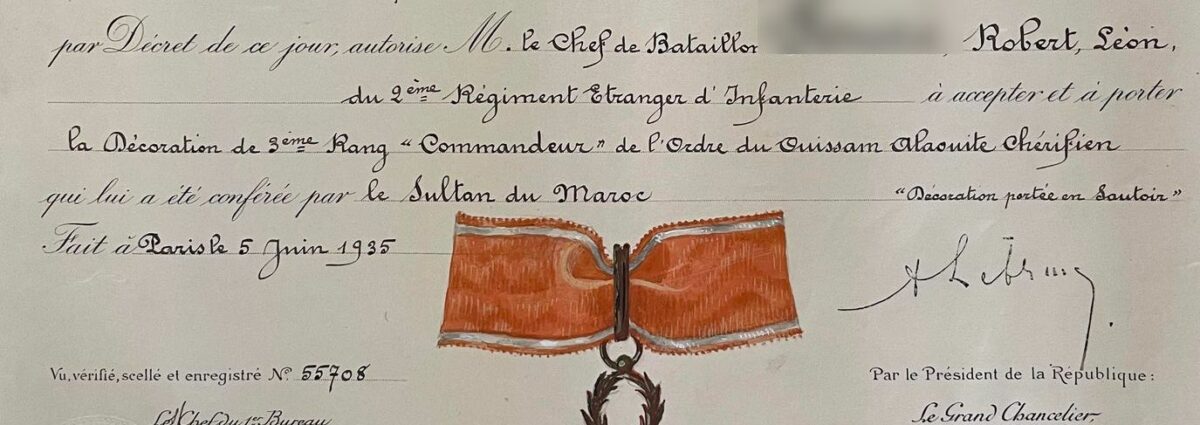 par Décret de ce jour, autorise M. le Chef de Bataillon , Robert, Léon,
du 2ème Régiment Etranger d'Infanterie à accepter et à porter
la Décoration de 3ème Rang "Commandeur" de l'Ordre du Ouissam Alaouite Chérifien
qui lui a été conférée par le Sultan du Maroc "Décoration portée en Sautoir"
Fait à Paris le 5 Juin 1935
A Lebrun
Vu, vérifié, scellé et enregistré N° 55708
Par le Président de la République:
Le Chef du 1er Bureau
Le Grand Chancelier,